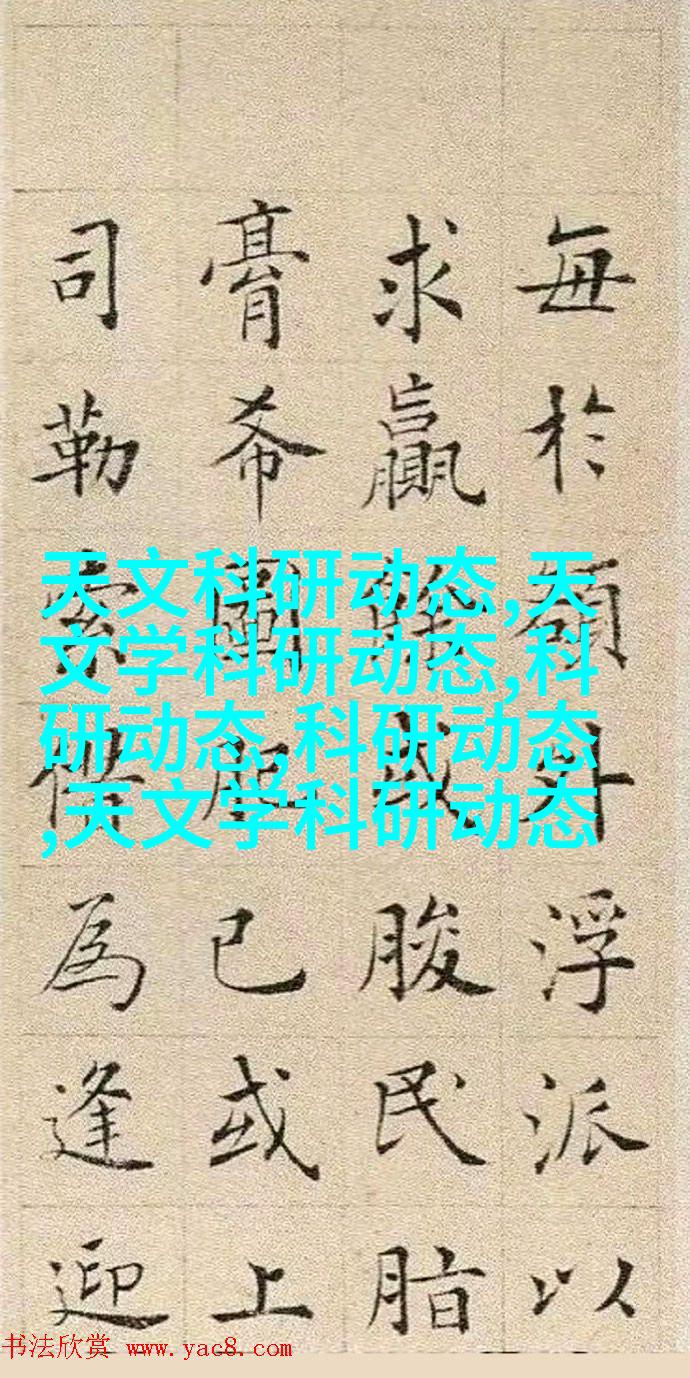 每於額外浮派以
求贏餘或朘民脂
膏希圖肥已或上
司勒索為逢迎
天文科研动态,天
文学科研动态,科
研动态,科研动态
,天文学科研动态
书法欣赏 www.yac8.com